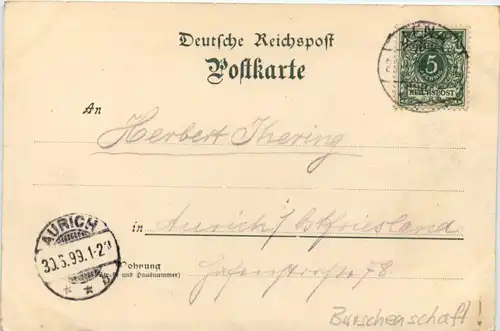 Deutsche Reichspost
Postkarte
5
REICHSPOST
An
Herbert Ihering
in Aurich / Ostfriesland
AURICH
30.5.99.1-2N
* * b
Wohnung
(Straße und Hausnummer)
Hafenstraße 78
Burschenschaft!